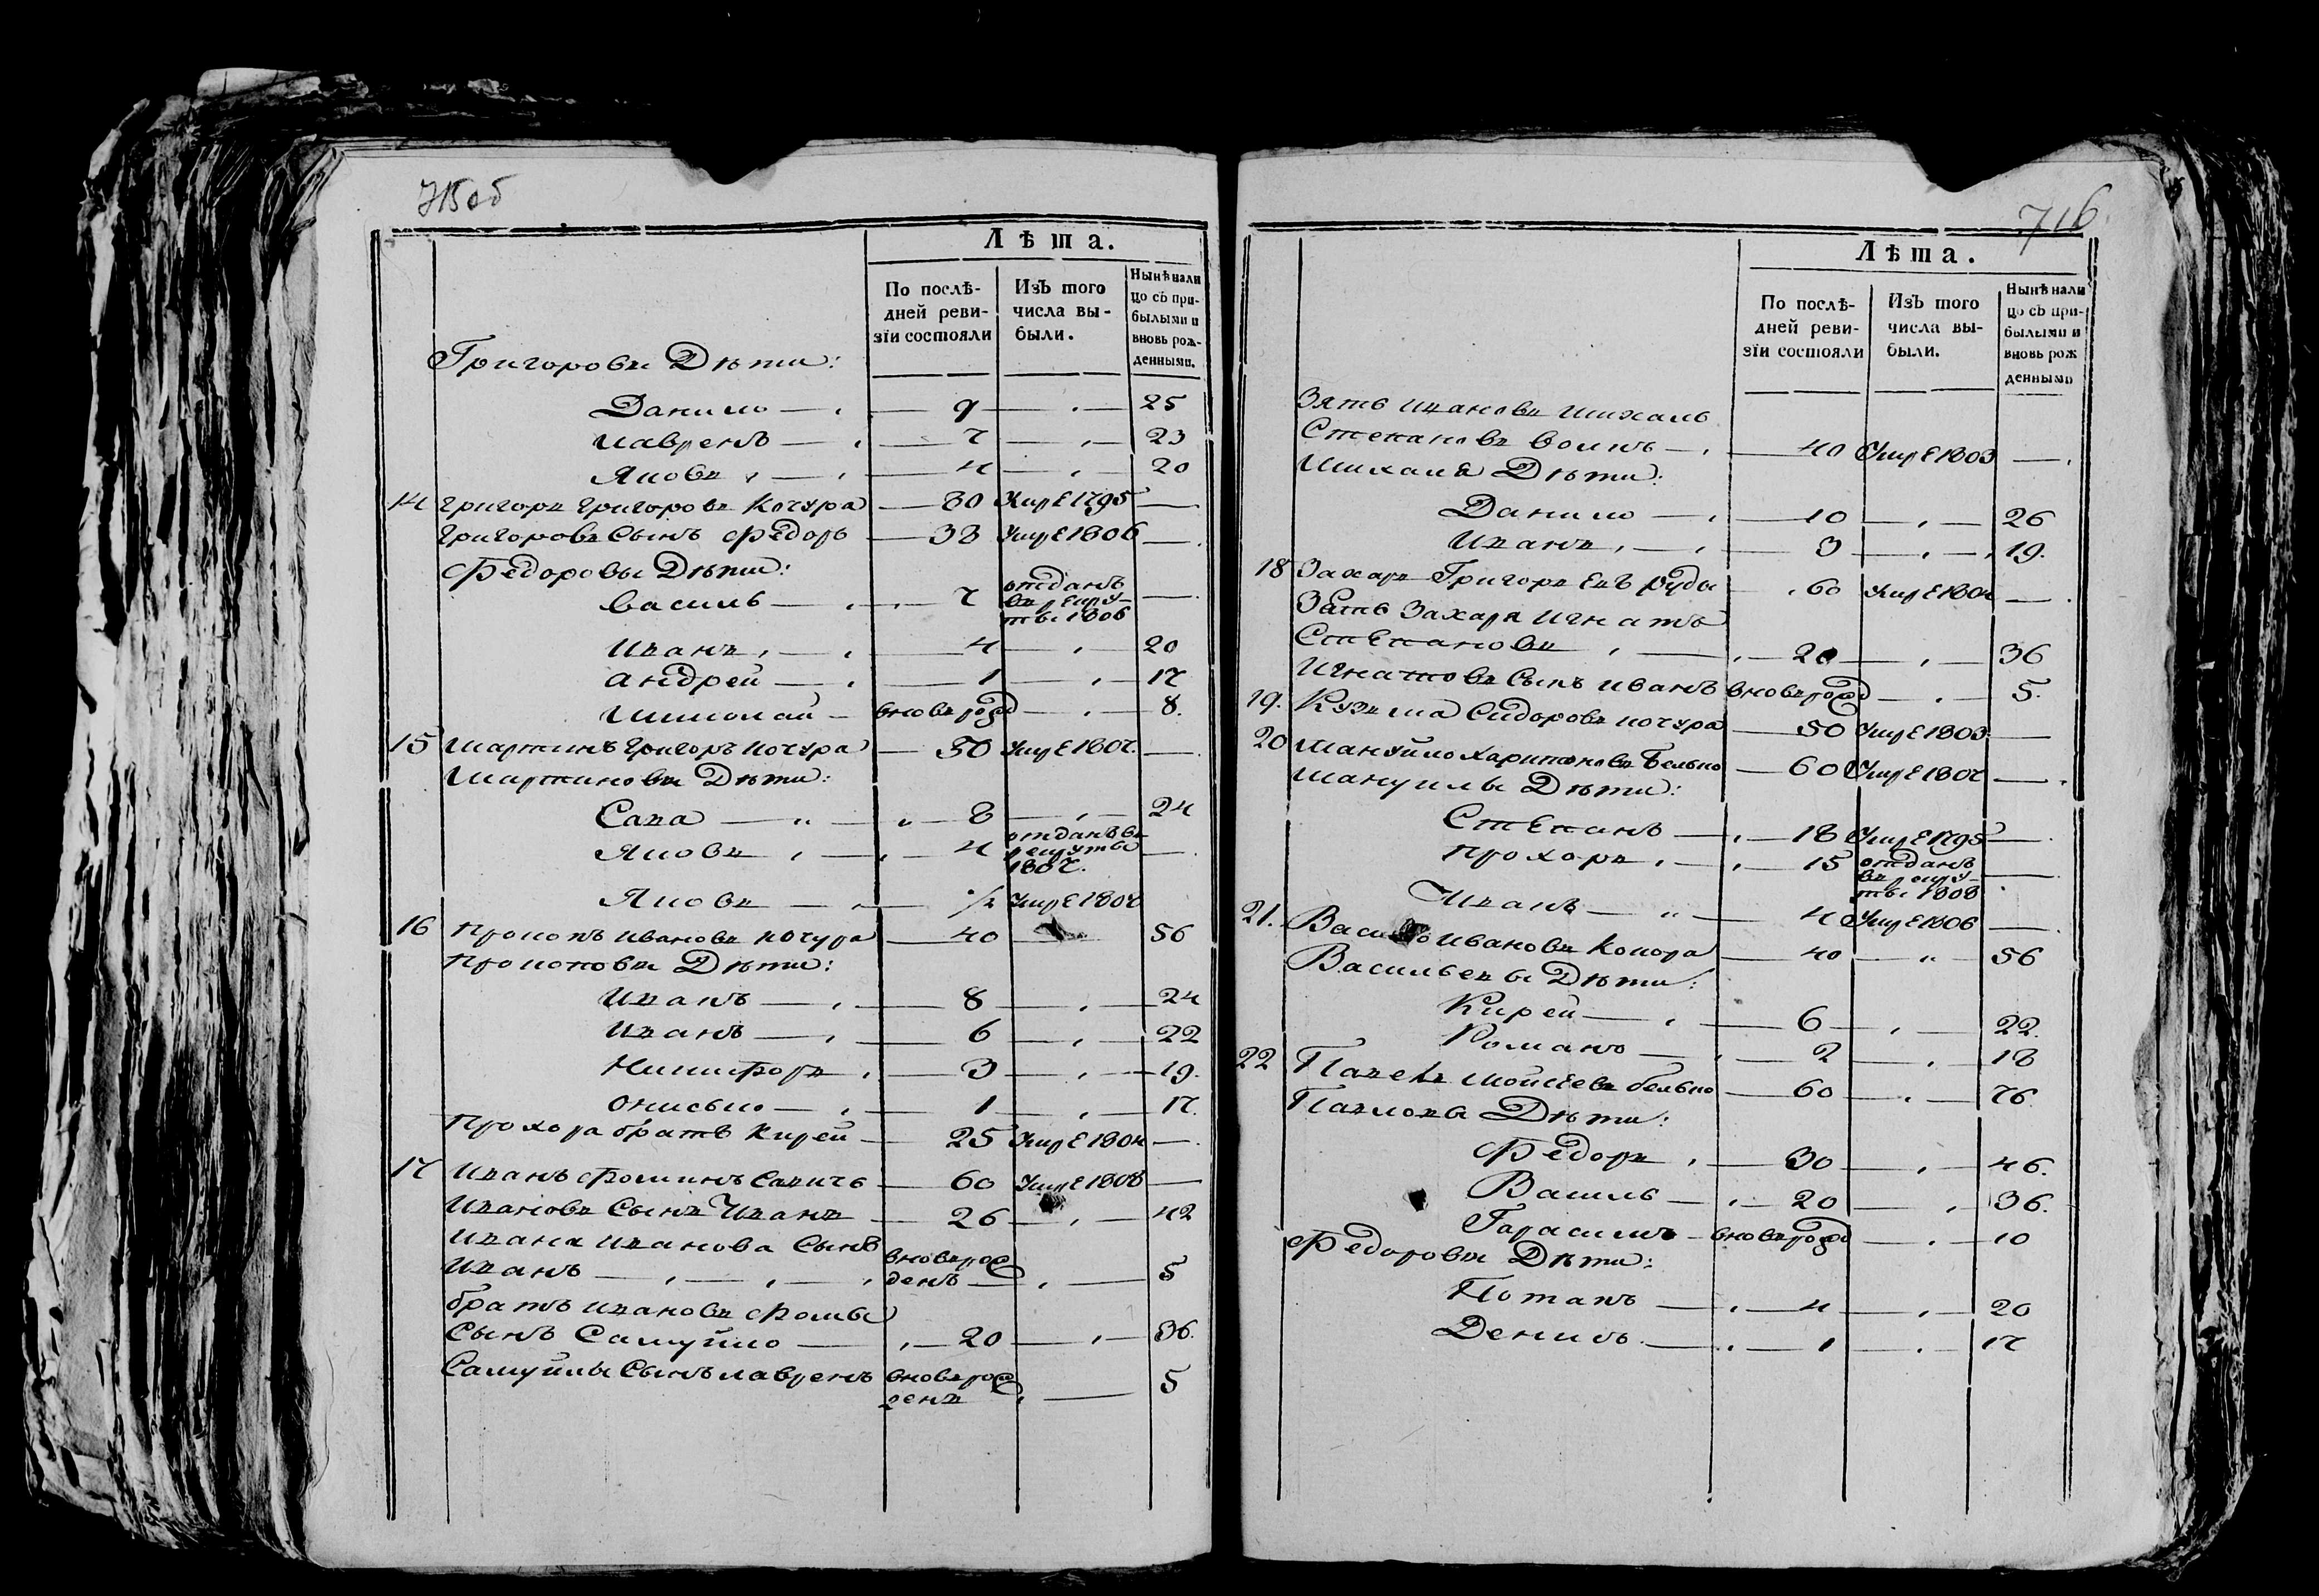 715об
Лѣта.
По послѣ-
дней реви-
зіи состояли
Изъ того
числа вы-
были.
Нынѣ нали
цо съ при-
былыми и
вновь рож-
денными.
Григоровы Дѣти:
Данило — 9 — 25
Лавренъ — 7 — 23
Яковъ — 4 — 20
14 Григоръ Григоровъ Кочура — 80 Умре 1795 —
Григоровъ Сынъ Федоръ — 38 Умре 1806 —
Федоровы Дѣти:
Василь — 7 отданъ въ рекруты 1806 —
Иванъ — 4 — 20
Андрей — 1 — 17
Николай — вновь рожд — 8.
15 Мартинъ Григоръ Кочура — 50 Умре 1807. —
Мартиновы Дѣти:
Сава — 8 — 24
Яковъ — 4 отданъ въ рекруты 1807. —
Яковъ — 1/2 Умре 1808
16 Прокопъ Ивановъ Кочура — 40 — 56
Прокоповы Дѣти:
Иванъ — 8 — 24
Иванъ — 6 — 22
Никифоръ — 3 — 19.
Онисько — 1 — 17.
Прохора братъ Кирей — 25 Умре 1804 —
17 Иванъ Фоминъ Савичъ — 60 Умре 1808 —
Ивановъ Сынъ Иванъ — 26 — 42
Ивана Иванова Сынъ
Иванъ — вновь рожденъ — 5
братъ Ивановъ Фомы
Сынъ Самуйло — 20 — 36.
Самуйлы Сынъ Лавренъ вновь рожденъ — 5
716
Лѣта.
По послѣ-
дней реви-
зіи состояли
Изъ того
числа вы-
были.
Нынѣ нали
цо съ при-
былыми и
вновь рож
денными
Зять Ивановъ Михаль
Степановъ — 40 Умре 1803 —
Михала Дѣти:
Данило — 10 — 26
Иванъ — 3 — 19.
18 Захаръ Григорьевъ Руды — 60 Умре 1804 —
Зять Захара Игнатъ
Степановъ — 20 — 36
Игнатовъ Сынъ Иванъ вновь рожд — 5.
19. Кузьма Сидоровъ Кочура — 50 Умре 1803 —
20 Мануйло Харитоновъ Белько — 60 Умре 1807 —
Мануилы Дѣти:
Степанъ — 18 Умре 1795 —
Прохоръ — 15 отданъ въ рекруты 1808 —
Иванъ — 4 Умре 1806 —
21. Василь Ивановъ Конора — 40 — 56
Васильевы Дѣти:
Кирей — 6 — 22.
Романъ — 2 — 18
22 Павелъ Мойсеевъ Белько — 60 — 76
Павловы Дѣти:
Федоръ — 30 — 46.
Василь — 20 — 36.
Гарасимъ — вновь рожд — 10
Федоровы Дѣти:
Потапъ — 4 — 20
Денисъ — 1 — 17